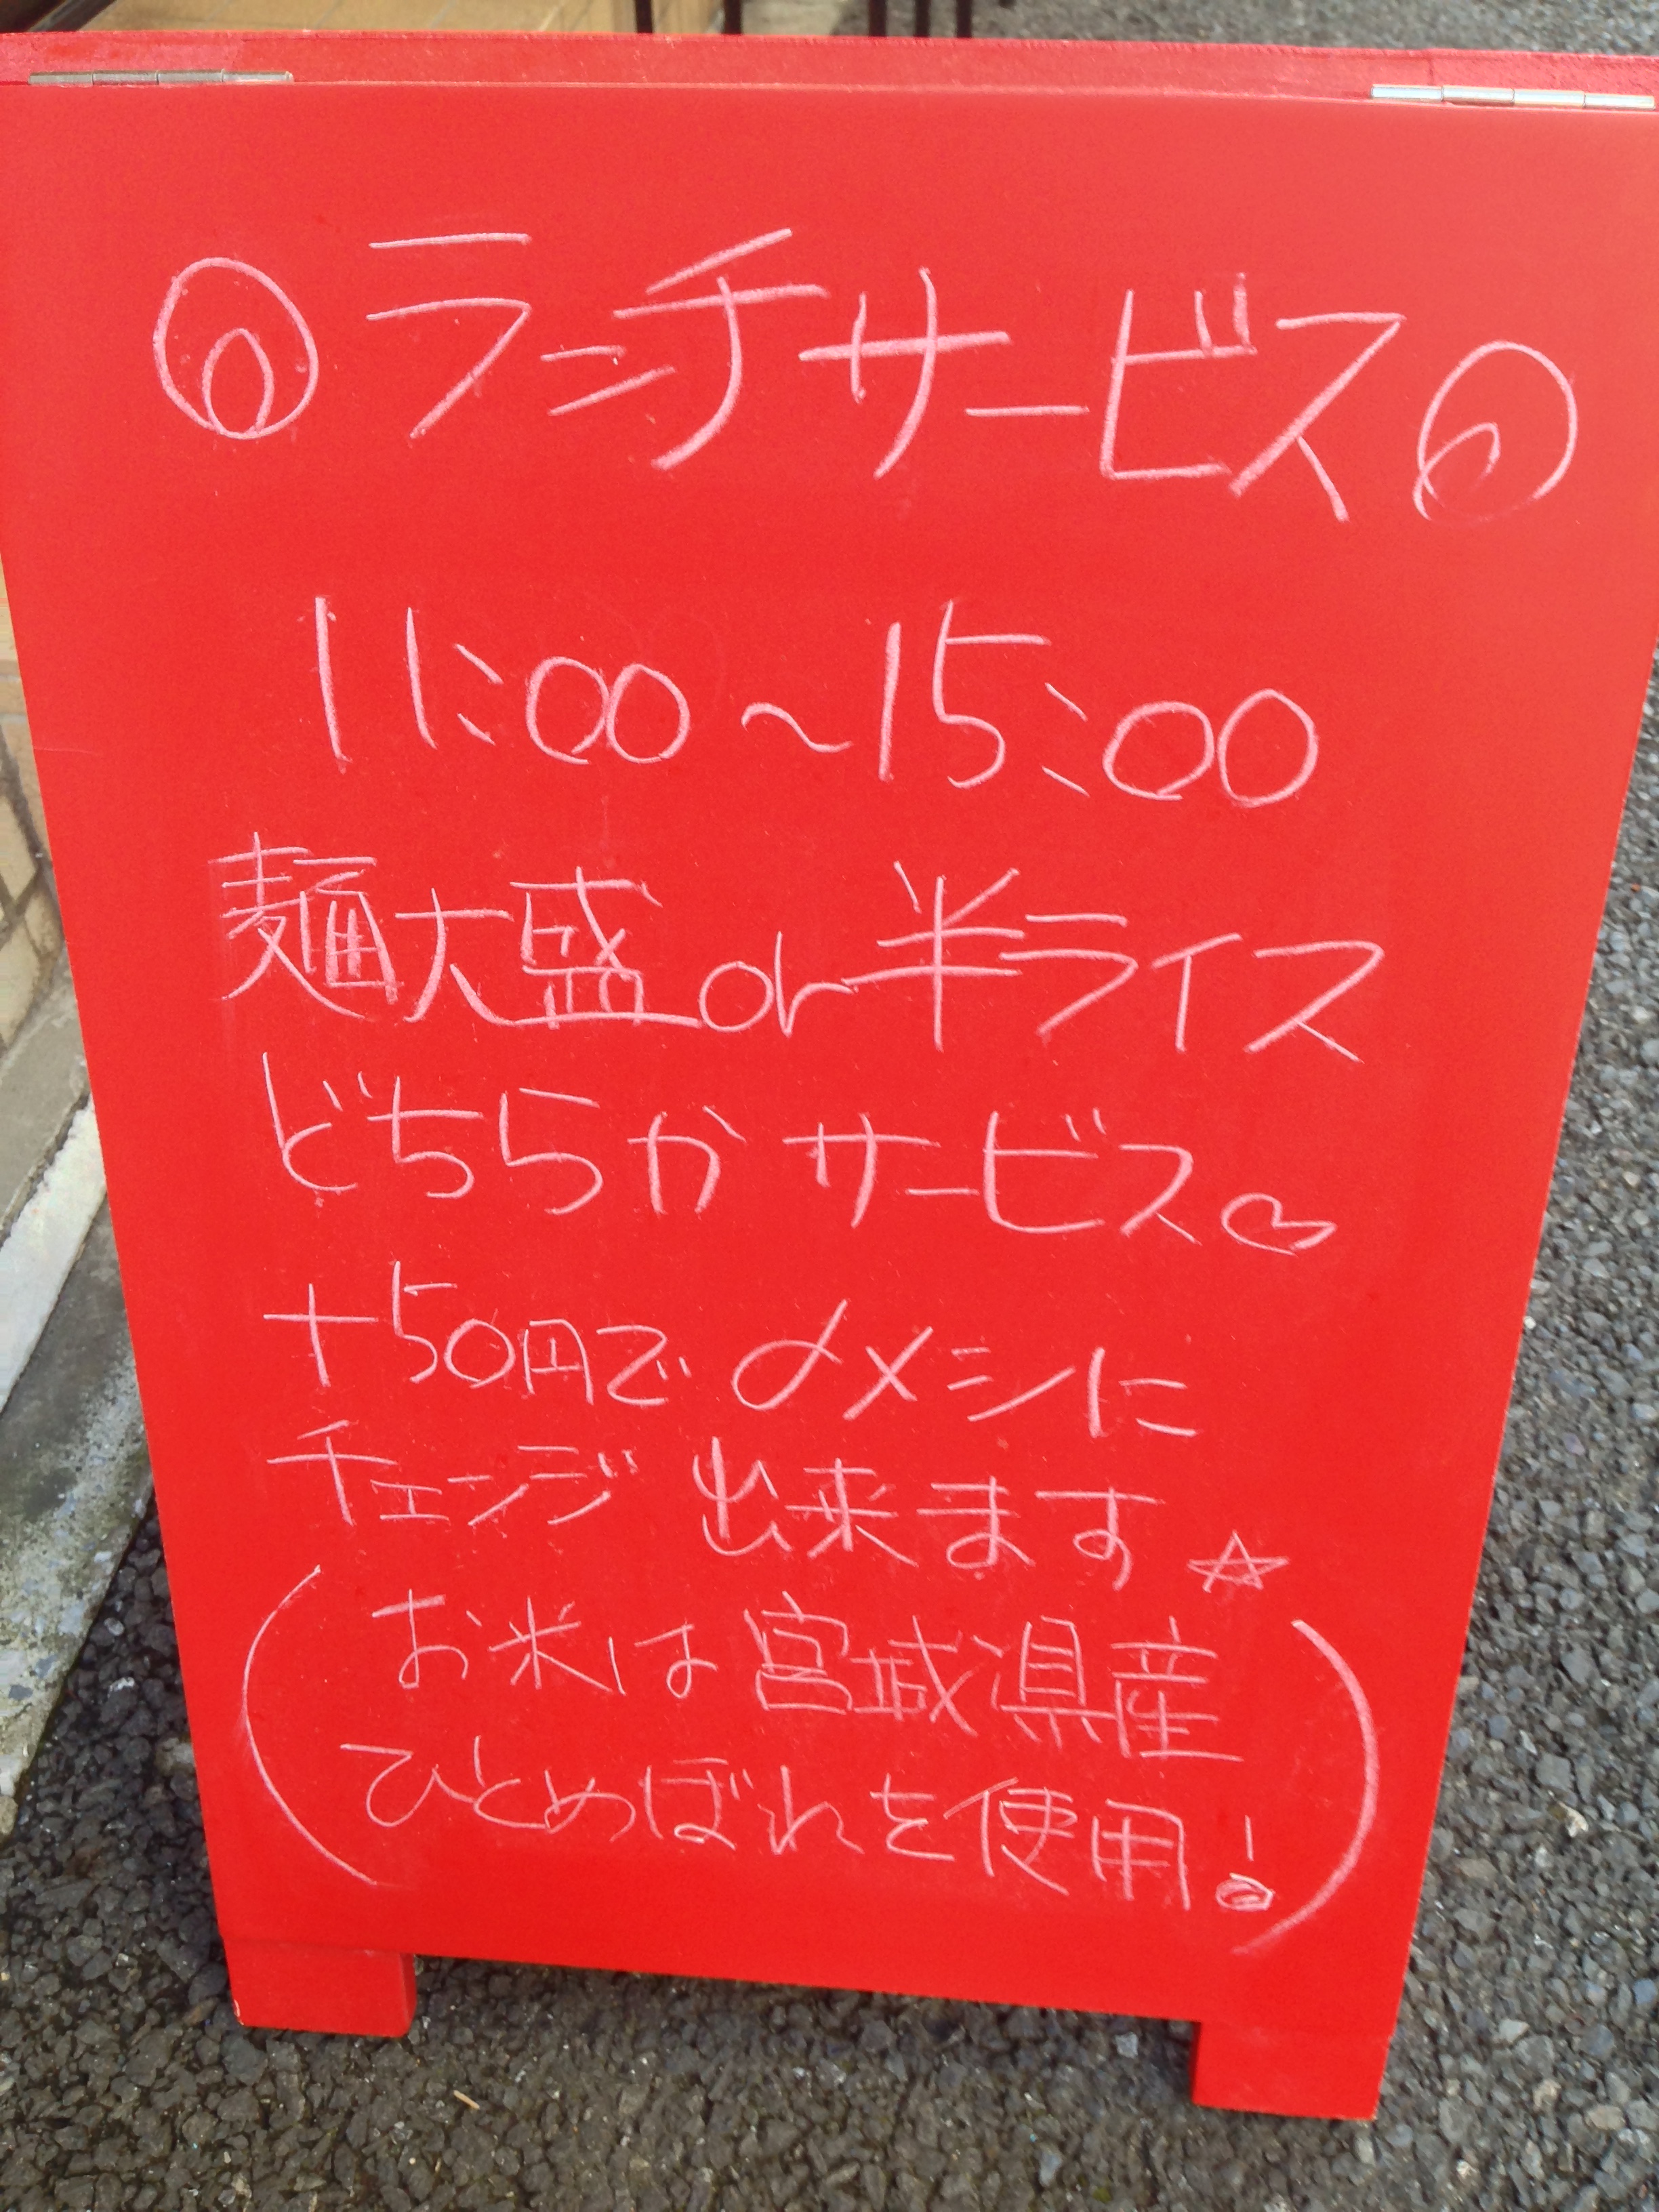 ランチサービス
11:00～15:00
麺大盛or半ライス
どちらかサービス♡
+50円で〆メシに
チェンジ出来ます☆
(お米は宮城県産
ひとめぼれを使用!)